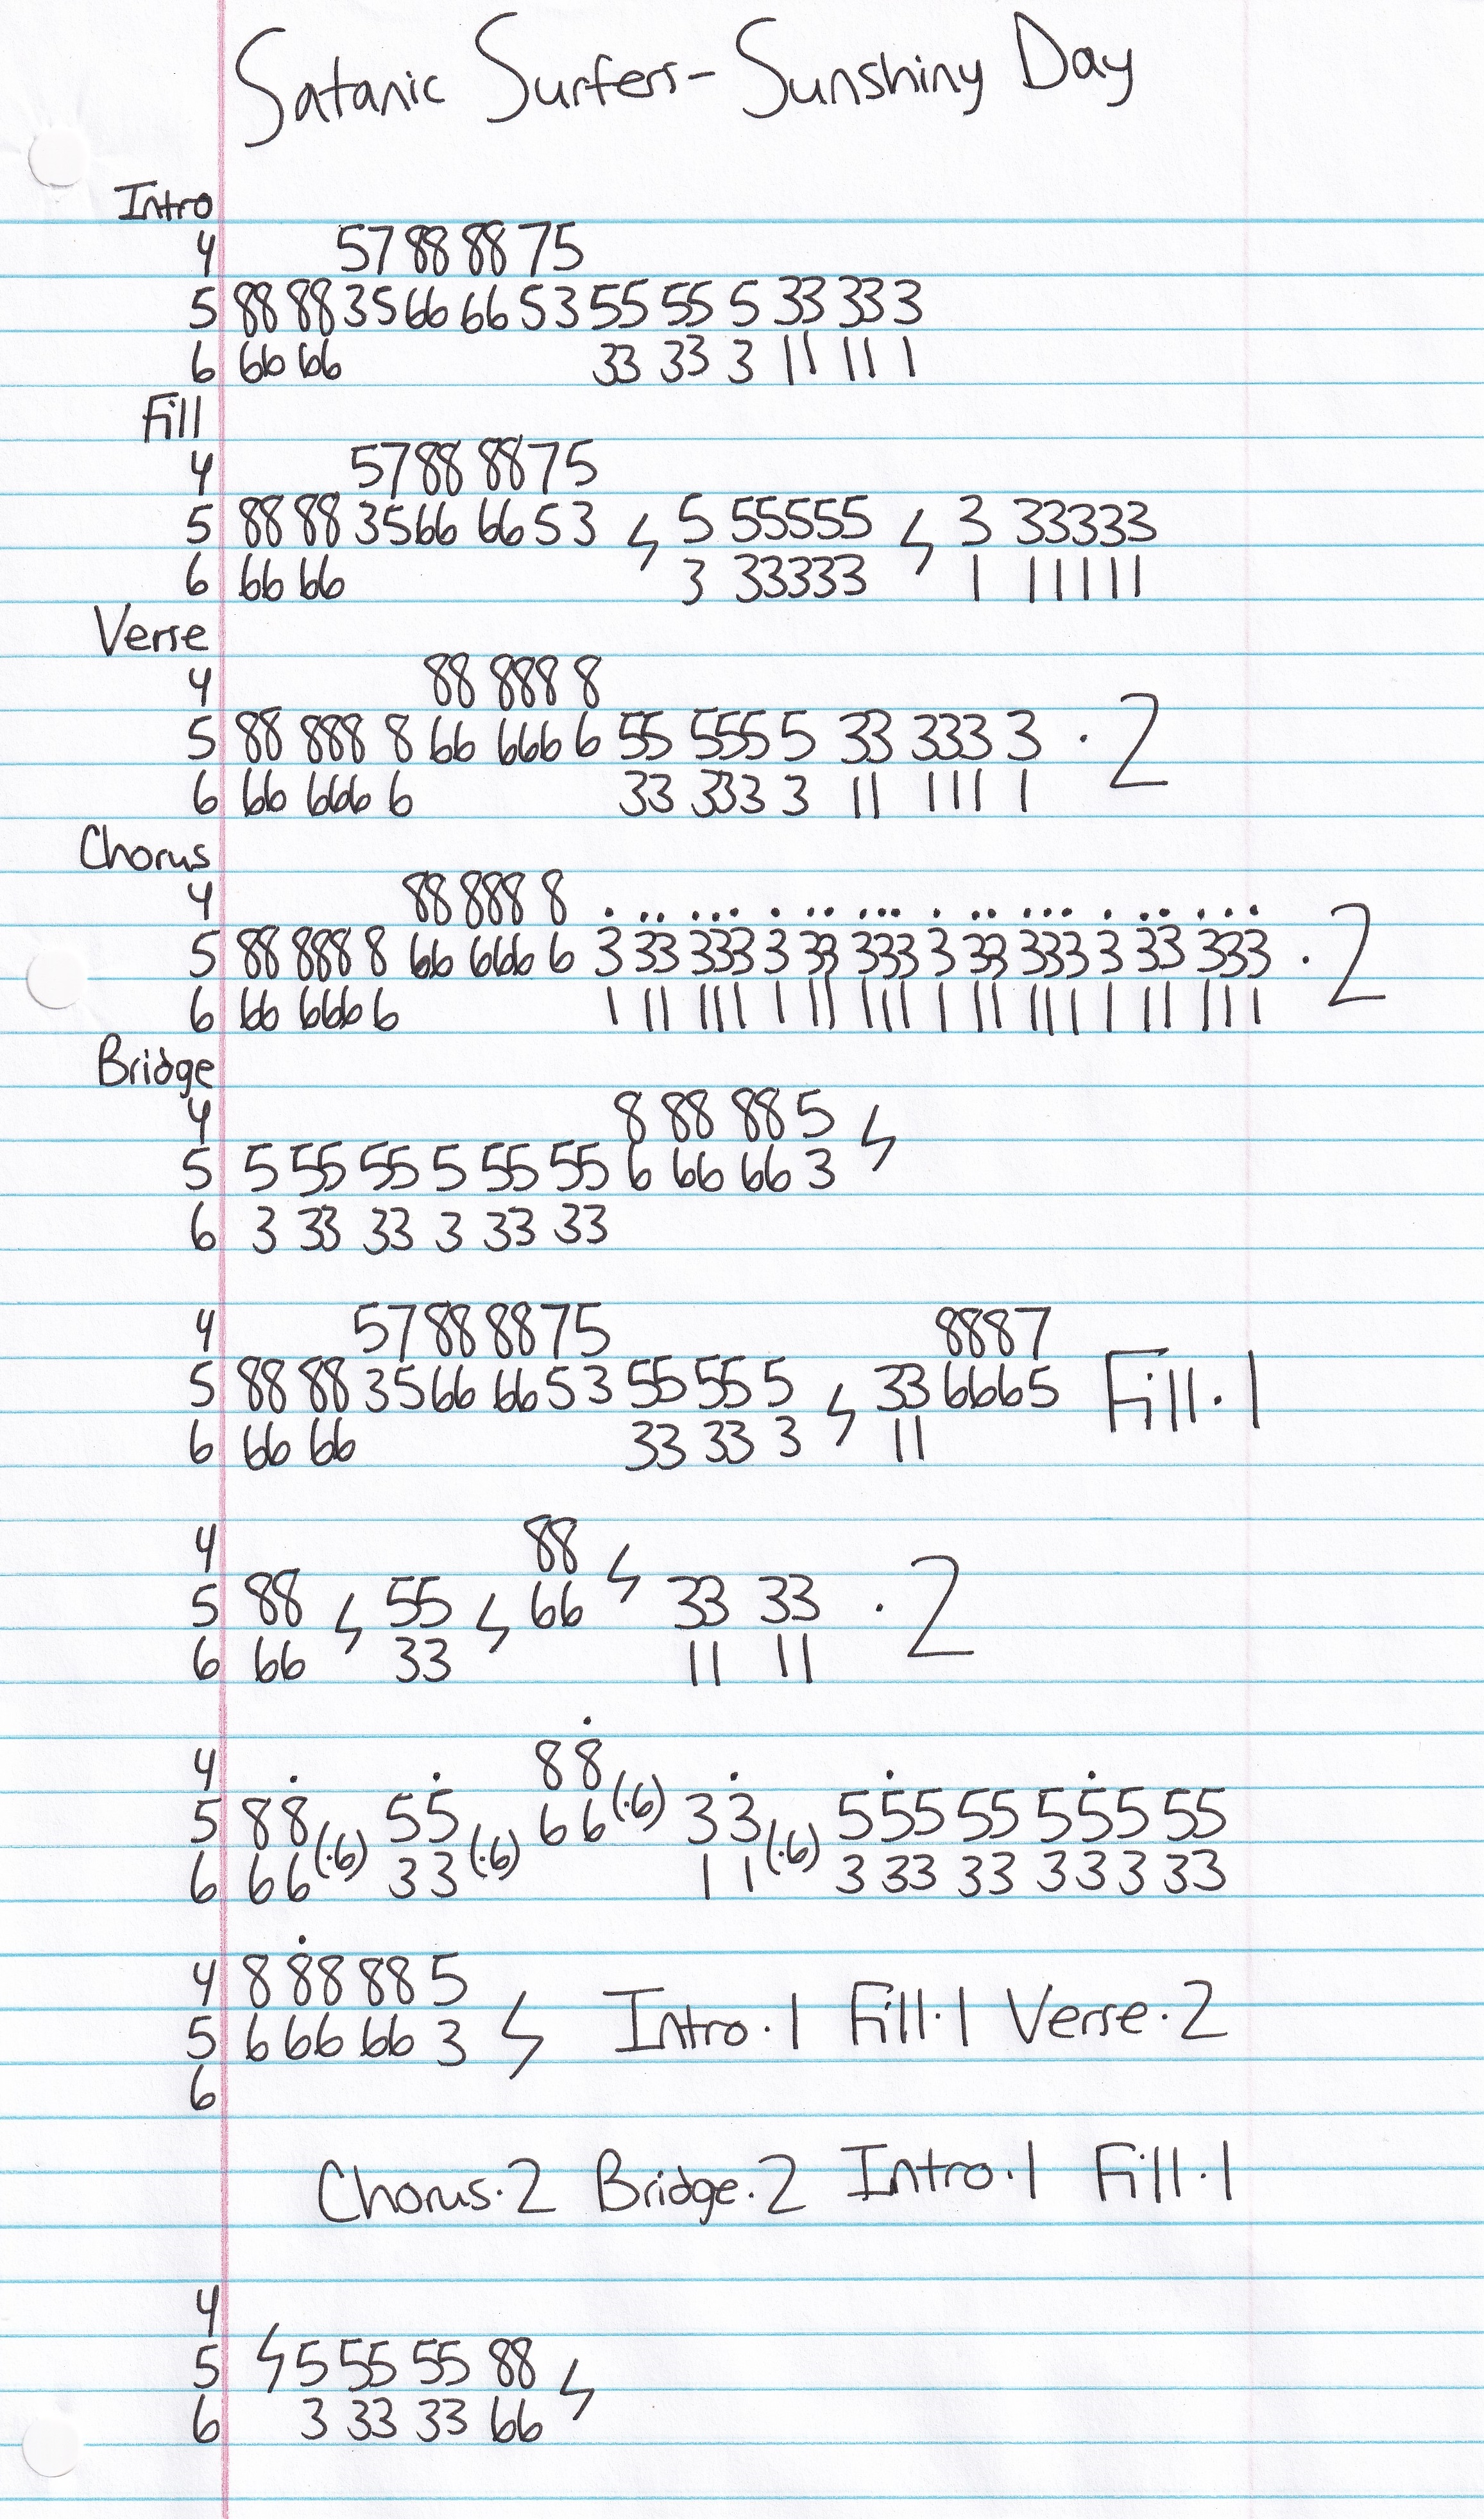 Satanic Surfers - Sunshiny Day
Intro
4 57 88 88 75
5 88 88 35 66 66 53 55 55 5 33 33 3
6 66 66 33 33 3 11 11 1
Fill
4 57 88 88 75
5 88 88 35 66 66 53 ϟ 5 55555 ϟ 3 33333
6 66 66 3 33333 1 11111
Verse
4 88 888 8
5 88 888 8 66 666 6 55 555 5 33 333 3 · 2
6 66 666 6 33 333 3 11 111 1
Chorus
4 88 888 8 . .. ... . .. ... . .. ... . .. ...
5 88 888 8 66 666 6 3 33 333 3 33 333 3 33 333 3 33 333 · 2
6 66 666 6 1 11 111 1 11 111 1 11 111 1 11 111
Bridge
4 8 88 88 5 ϟ
5 5 55 55 5 55 55 6 66 66 3
6 3 33 33 3 33 33
4 57 88 88 75 8887
5 88 88 35 66 66 53 55 55 5 ϟ 33 6665 Fill·1
6 66 66 33 33 3 11
4 88 ϟ
5 88 ϟ 55 ϟ 66 33 33 · 2
6 66 33 11 11
4 88
5 88 (·6) 55 (·6) 66 (·6) 33 (·6) 5 55 55 5 55 55
6 66 33 11 3 33 33 3 33 33
4 8 88 88 5
5 6 66 66 3 ϟ Intro·1 Fill·1 Verse·2
6
Chorus·2 Bridge·2 Intro·1 Fill·1
4
5 ϟ 5 55 55 88 ϟ
6 3 33 33 66